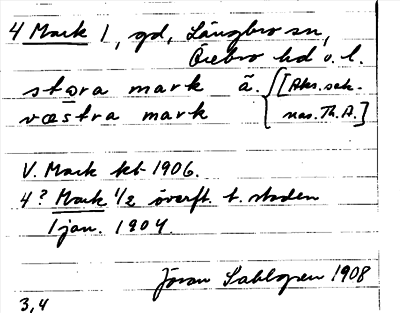 4 Mark 1, gd, Längbro sn,
Örebro hd o. l.
støra mark ã. [Aks. sak-
væstra mark nas. Th. A.]
V. Mark kb 1906.
4? Mark 1/2 överfl. t. staden
1 jan. 1904.
Jöran Sahlgren 1908
3,4